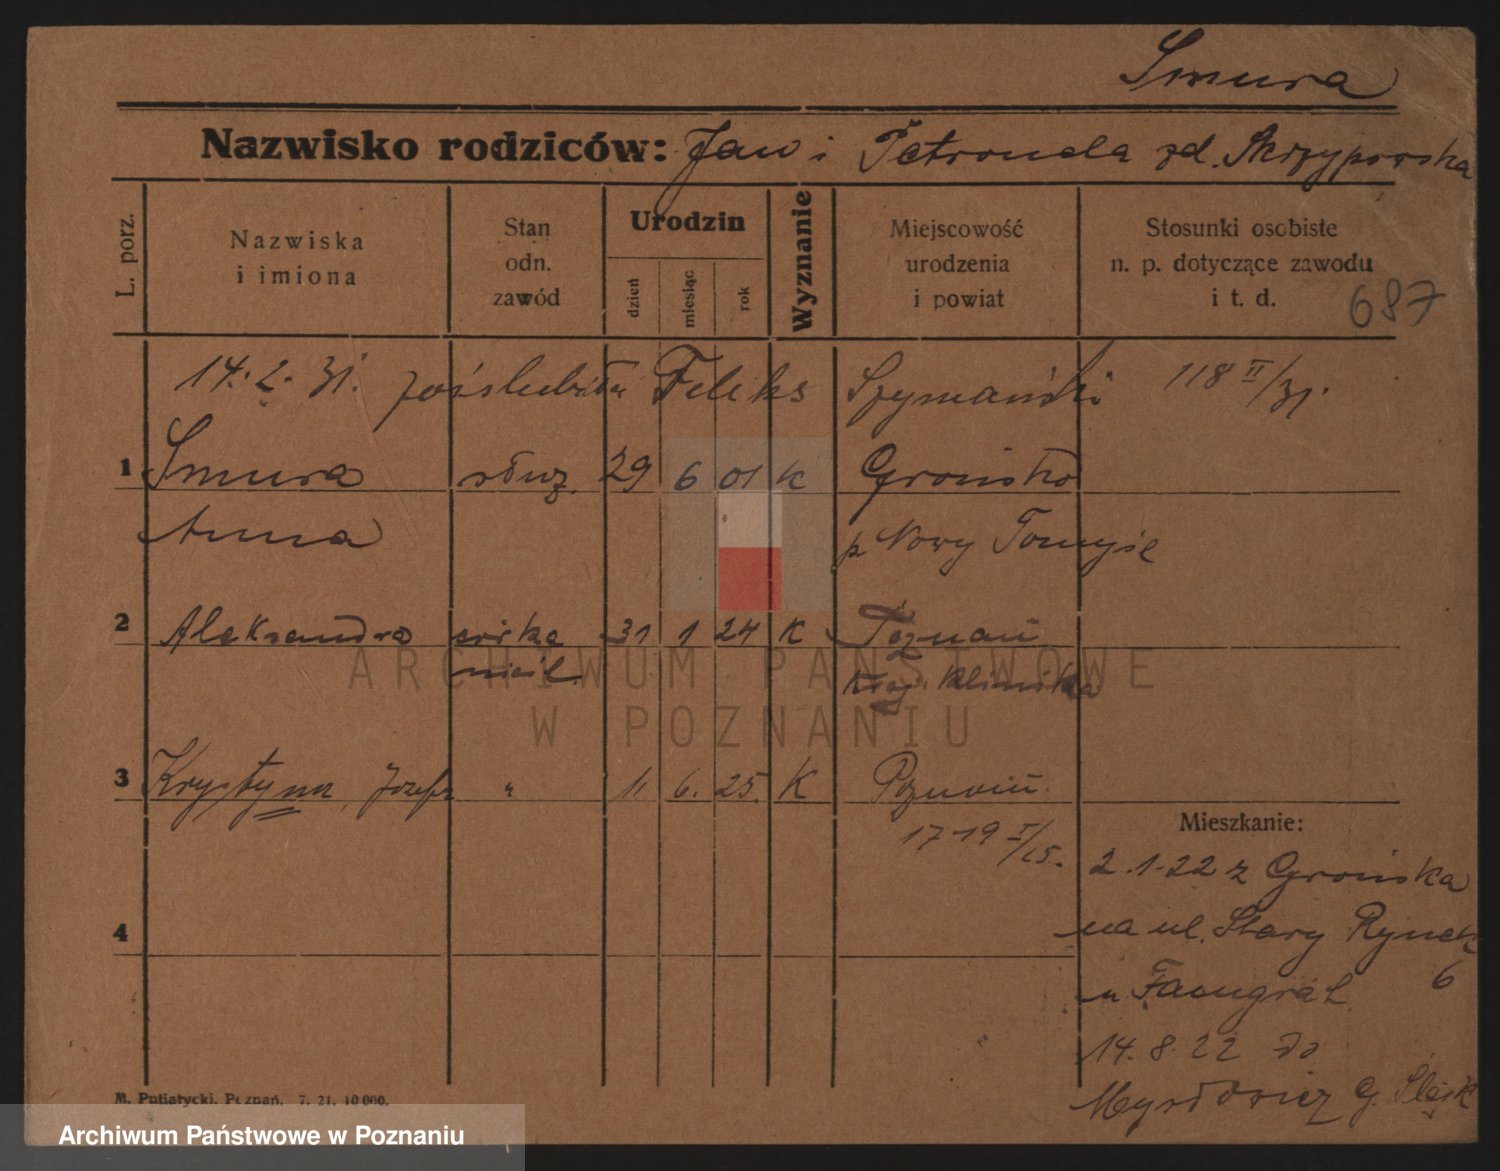 Smura
Nazwisko rodziców: Jan i Petronela zd. Skrzypowska
L. porz.
Nazwiska
i imiona
Stan
odn.
zawód
Urodzin
dzień
miesiąc
rok
Wyznanie
Miejscowość
urodzenia
i powiat
Stosunki osobiste
n. p. dotyczące zawodu
i t. d.
687
14. 2. 31. poślubiła Feliks Szymański 118 II/31.
1 Smura służ. 29 6 01 K Grońsko
Anna p Nowy Tomyśl
2 Aleksandra córka 31 1 24 K Poznań
nieśl. Klinika
3 Krystyna, Józefa " 11 6. 25. K Poznań.
17-19 I/25.
Mieszkanie:
2.1.22 z Grońska
na ul. Stary Rynek
6
u
14.8.22 do
Mysłowicz G. Śląsk
4
M. Putiatycki, Poznań. 7. 21. 10 000.
ARCHIWUM PAŃSTWOWE
W POZNANIU
Archiwum Państwowe w Poznaniu